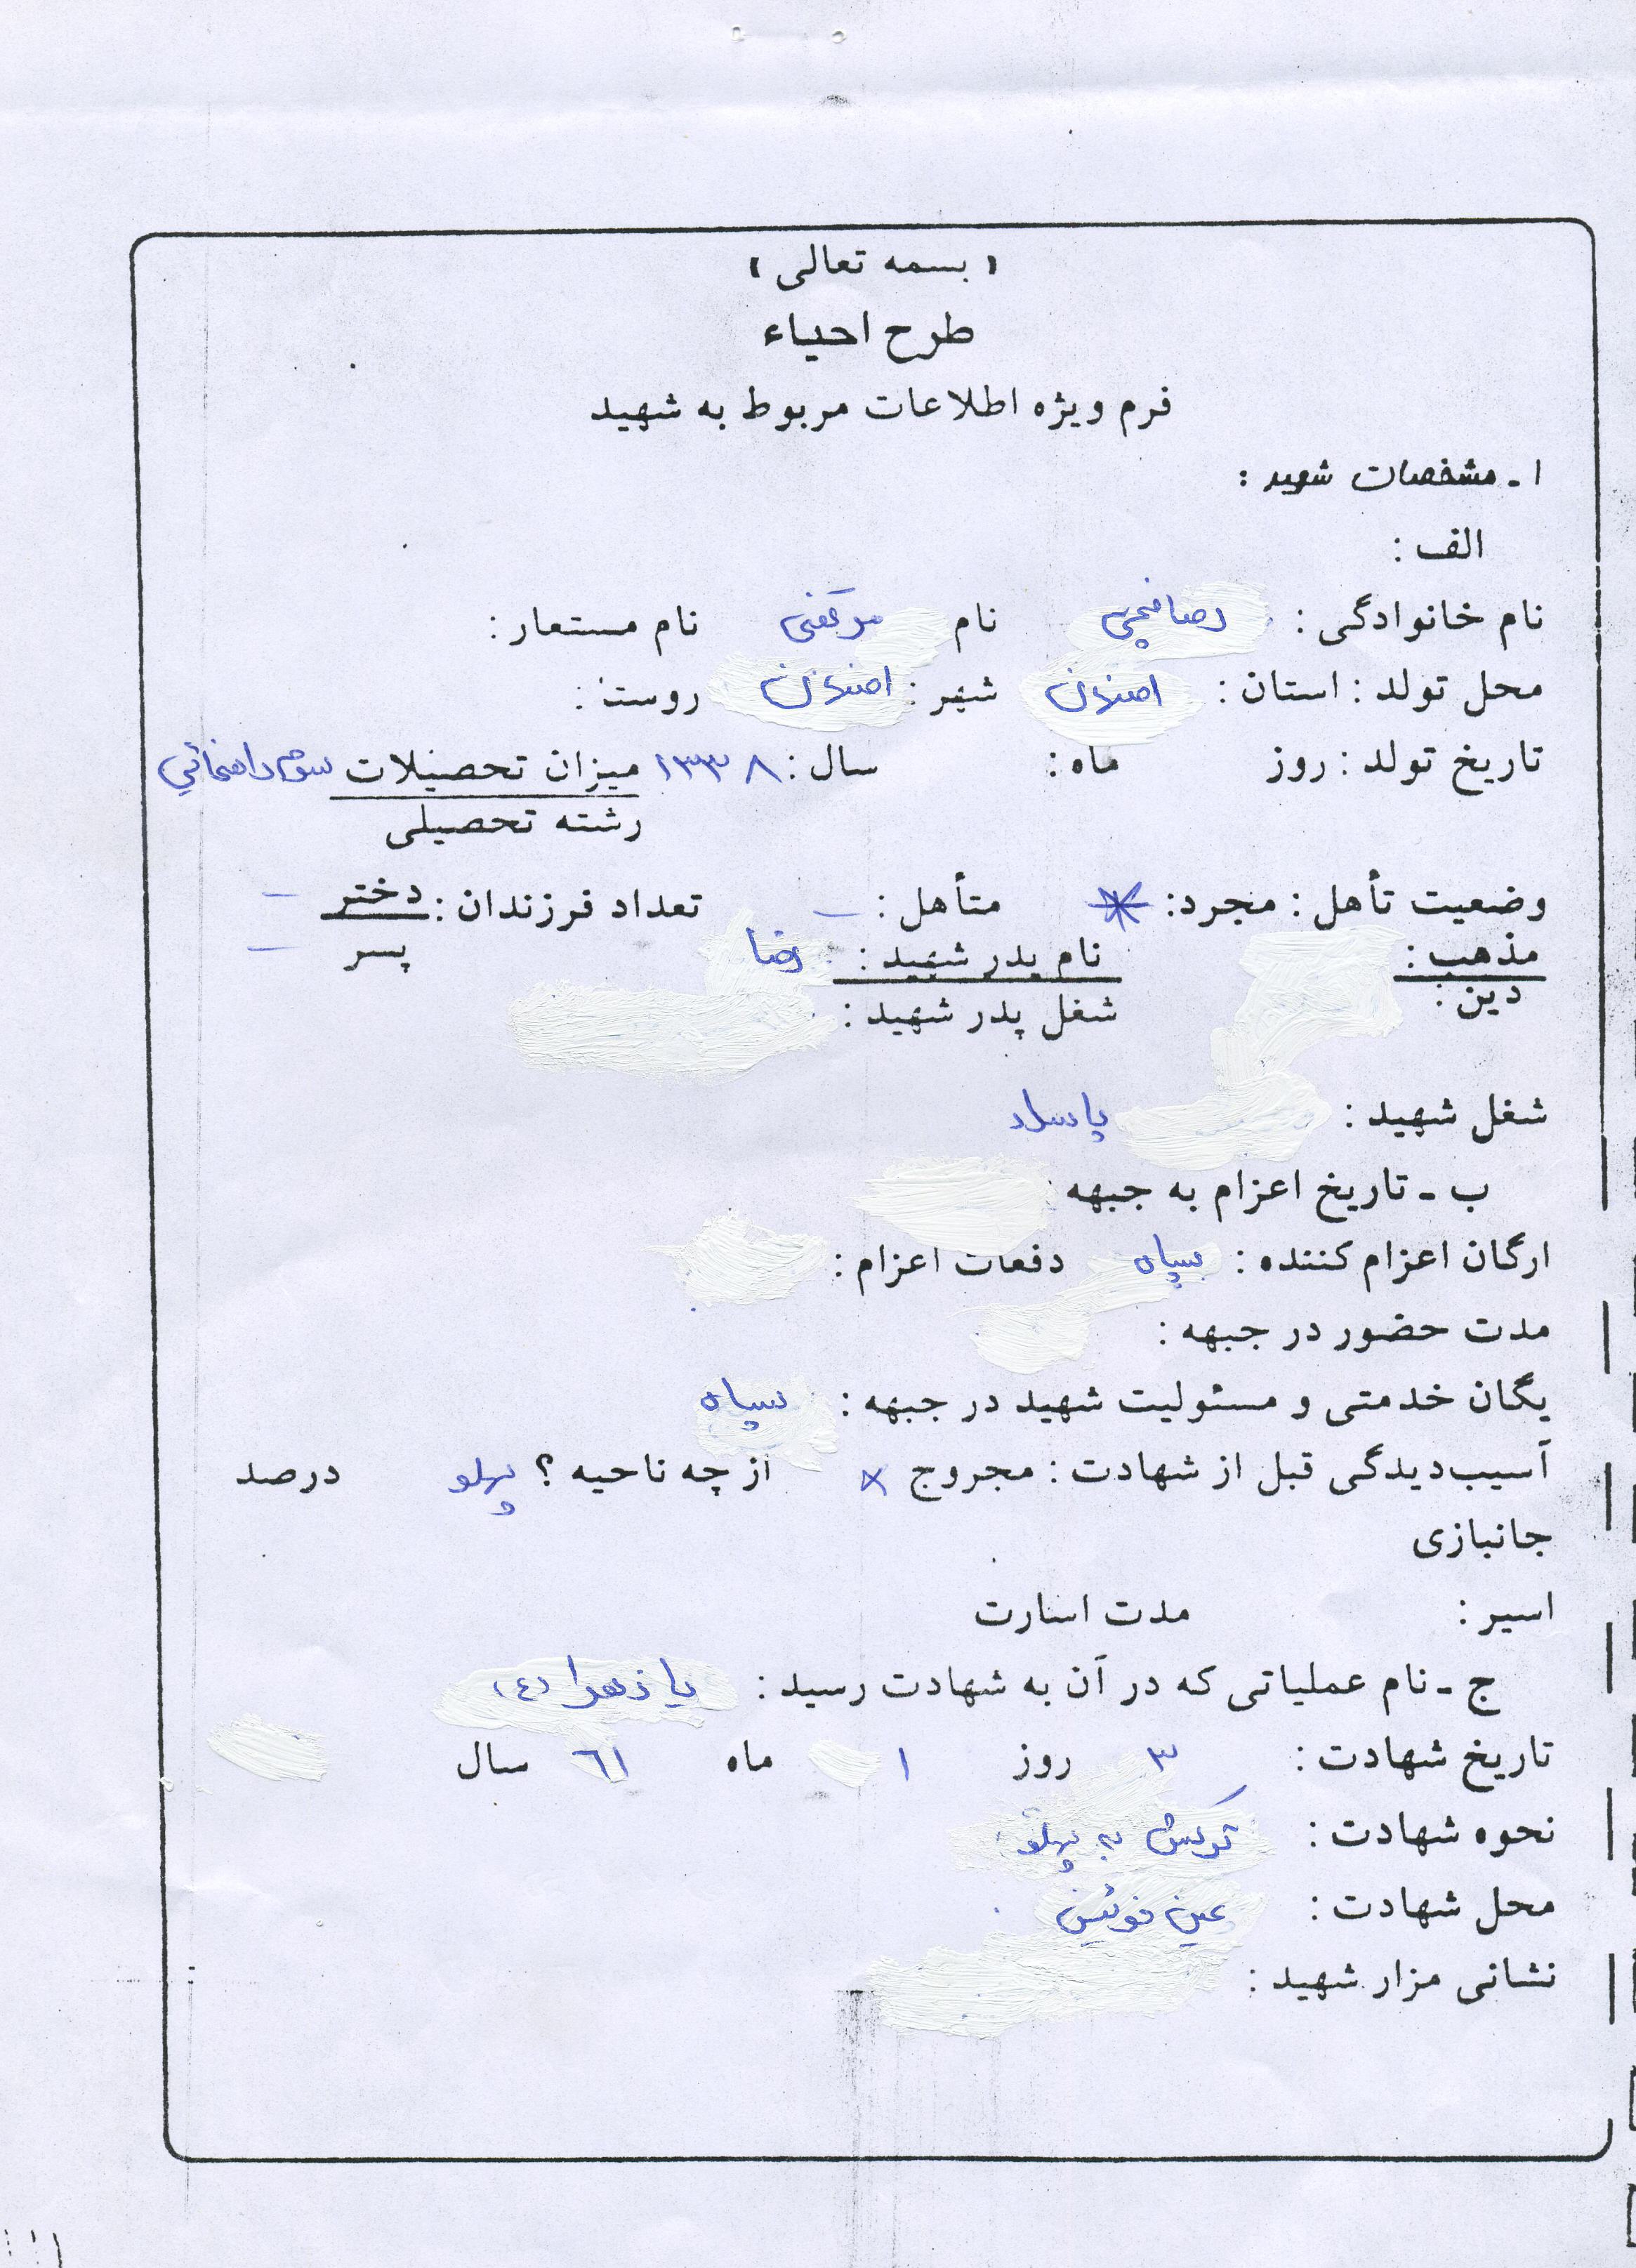 « بسمه تعالی »
طرح احیاء
فرم ویژه اطلاعات مربوط به شهید
۱ ـ مشخصات شهید :
الف :
نام خانوادگی : نام مرتضی نام مستعار :
محل تولد : استان : اصفهان شهر : اصفهان روستا :
تاریخ تولد : روز ماه : سال : ۱۳۳۸ میزان تحصیلات سوم راهنمائی
رشته تحصیلی
وضعیت تأهل : مجرد : * متأهل : – تعداد فرزندان : دختر –
مذهب : نام پدر شهید : رضا پسر –
دین : شغل پدر شهید :
شغل شهید : پاسدار
ب ـ تاریخ اعزام به جبهه :
ارگان اعزام کننده : سپاه دفعات اعزام :
مدت حضور در جبهه :
یگان خدمتی و مسئولیت شهید در جبهه : سپاه
آسیب‌دیدگی قبل از شهادت : مجروح × از چه ناحیه ؟ پهلو درصد
جانبازی
اسیر : مدت اسارت
ج ـ نام عملیاتی که در آن به شهادت رسید : یا زهرا (ع)
تاریخ شهادت : ۳ روز ۱ ماه ٦۱ سال
نحوه شهادت : ترکش به پهلو
محل شهادت : عین خوش
نشانی مزار شهید :